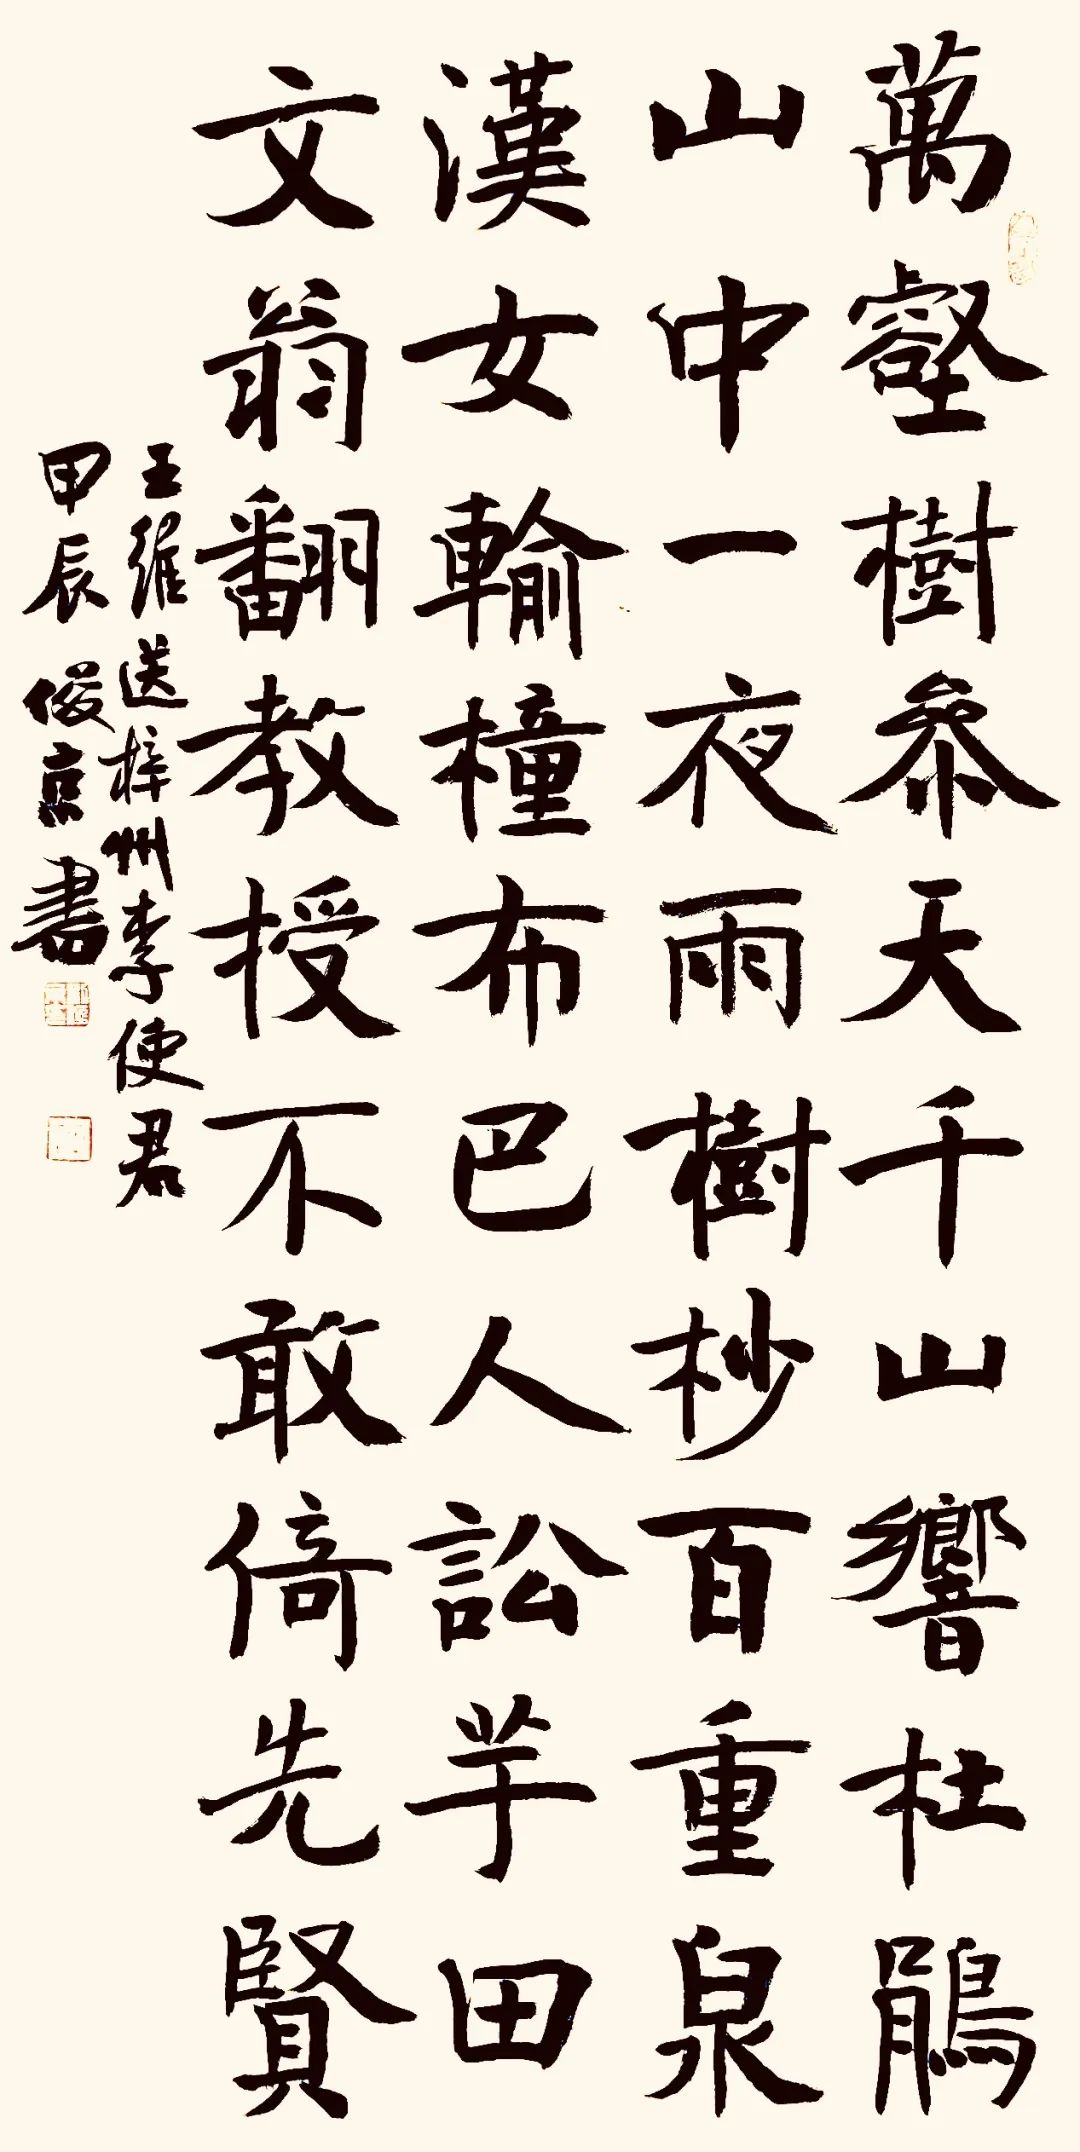 萬壑樹參天千山響杜鵑
山中一夜雨樹杪百重泉
漢女輸橦布巴人訟芋田
文翁翻教授不敢倚先賢
王維送梓州李使君
甲辰俊京書